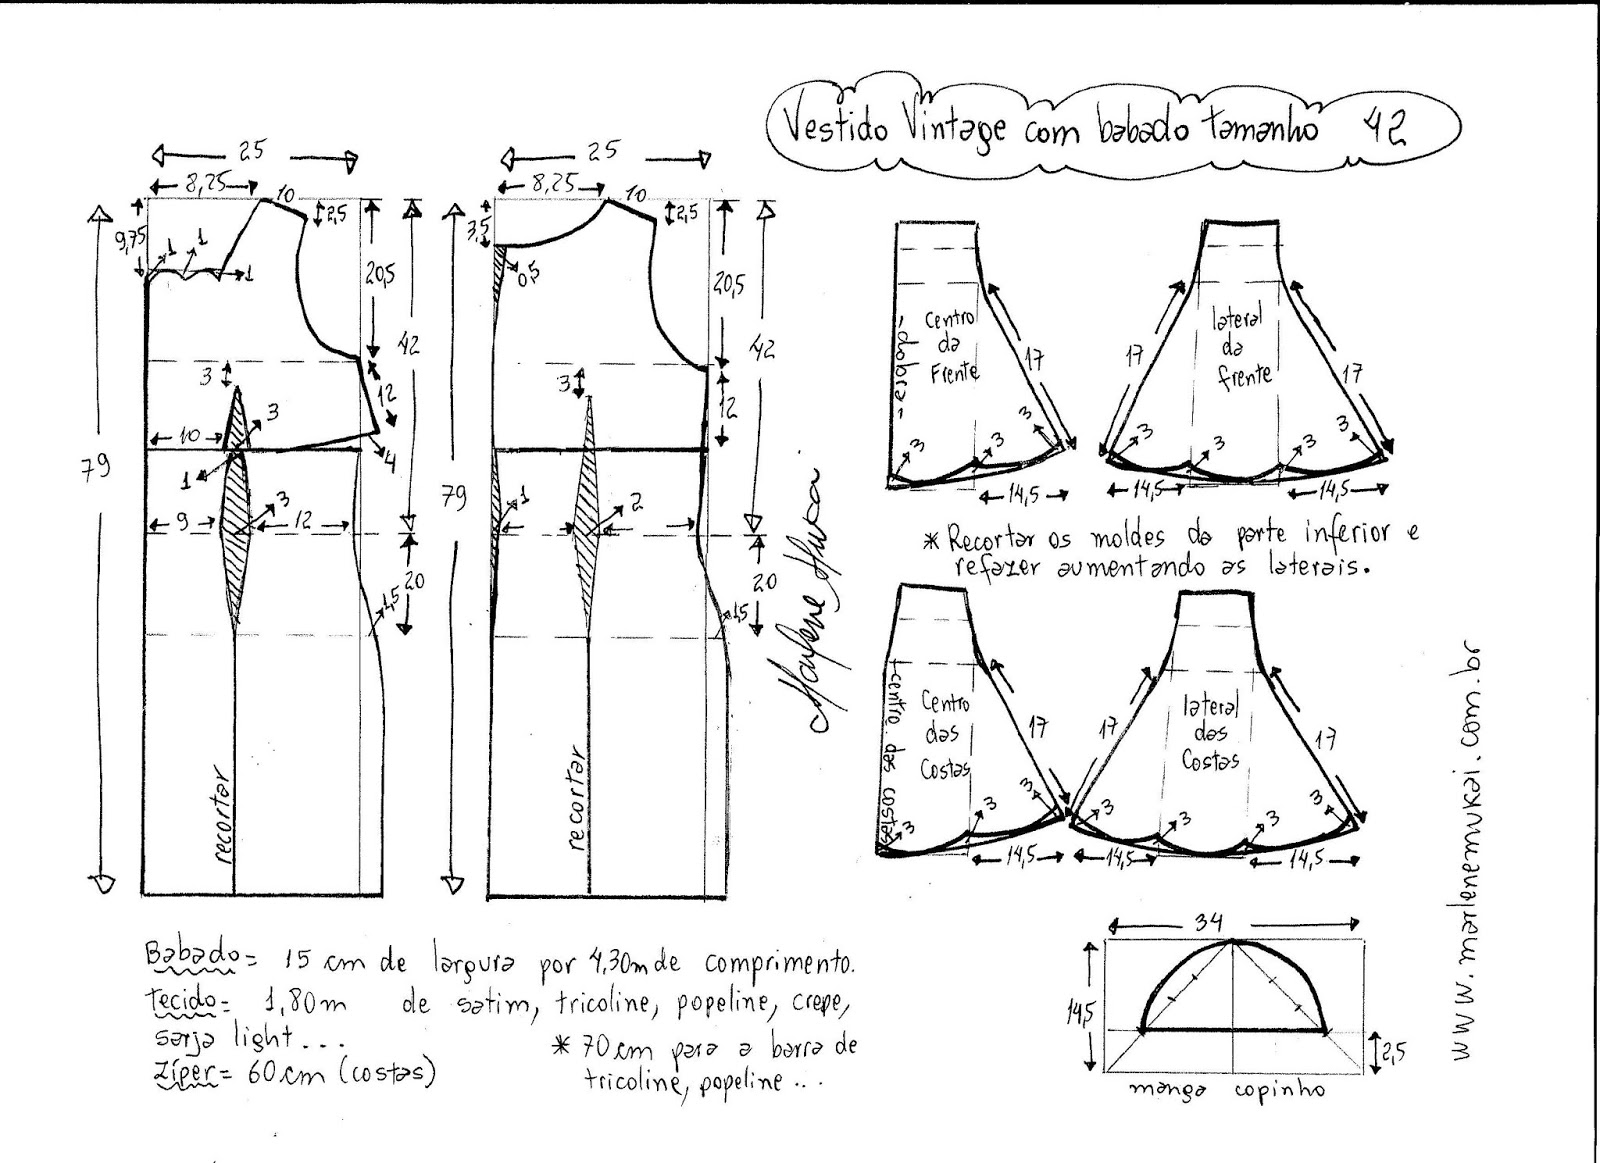 Vestido Vintage com babado tamanho 42
25
8,25
10
2,5
9,75
1
1
1
20,5
42
3
12
3
10
4
79
1
9
3
12
20
1,5
recortar
25
8,25
10
2,5
3,5
0,5
20,5
42
3
12
79
1
2
20
1,5
recortar
Marlene Mukai
centro
da
Frente
-dobra-
17
3
3
14,5
lateral
da
frente
17
17
3
3
3
3
14,5
14,5
* Recortar os moldes da parte inferior e
refazer aumentando as laterais.
centro das costas
Centro
das
Costas
17
3
3
3
14,5
lateral
das
Costas
17
17
3
3
3
3
14,5
14,5
Babado= 15 cm de largura por 4,30m de comprimento.
tecido= 1,80m de satim, tricoline, popeline, crepe,
sarja light...
Zíper= 60cm (costas)
* 70cm para a barra de
tricoline, popeline...
34
14,5
2,5
manga copinho
www.marlenemukai.com.br